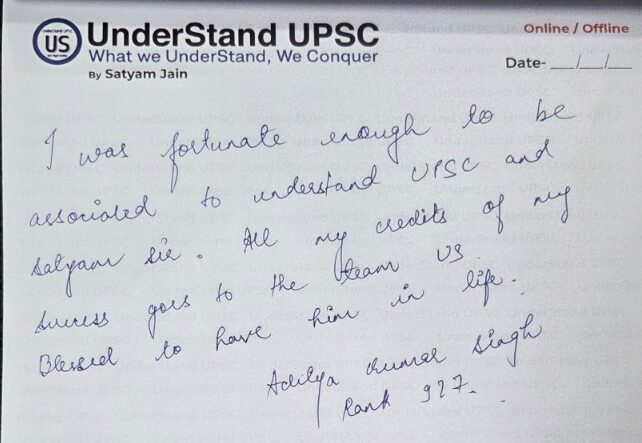 UNDERSTAND UPSC
US
UnderStand UPSC
What we UnderStand, We Conquer
By Satyam Jain
Online / Offline
Date- __/__/__
I was fortunate enough to be
associated to understand UPSC and
Satyam Sir. All my credits of my
Success goes to the team US.
Blessed to have him in life.
Aditya Kumar Singh
Rank 927.